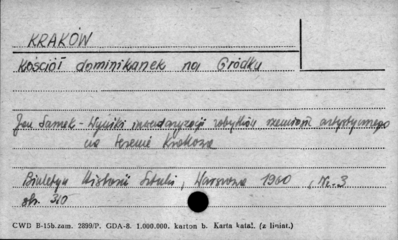 KRAKÓW
Kościół dominikanek na Gródku
Jan Samek - Wyniki inwentaryzacji zabytków rzemiosła artystycznego
na terenie Krakowa
Biuletyn Historii Sztuki, Warszawa 1960, Nr. 3
str. 310
CWD B-15b.zam. 2899/P. GDA-8. 1.000.000. karton b. Karta katal. (z liniat.)